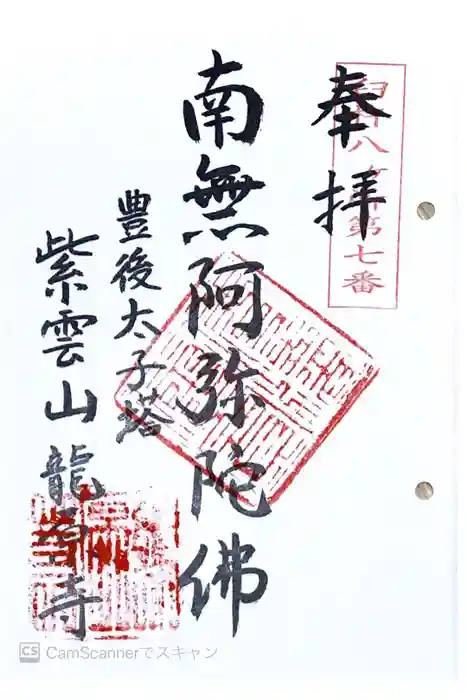 奉拝
第七番
南無阿弥陀佛
豊後太子塔
紫雲山龍原寺
CS CamScannerでスキャン